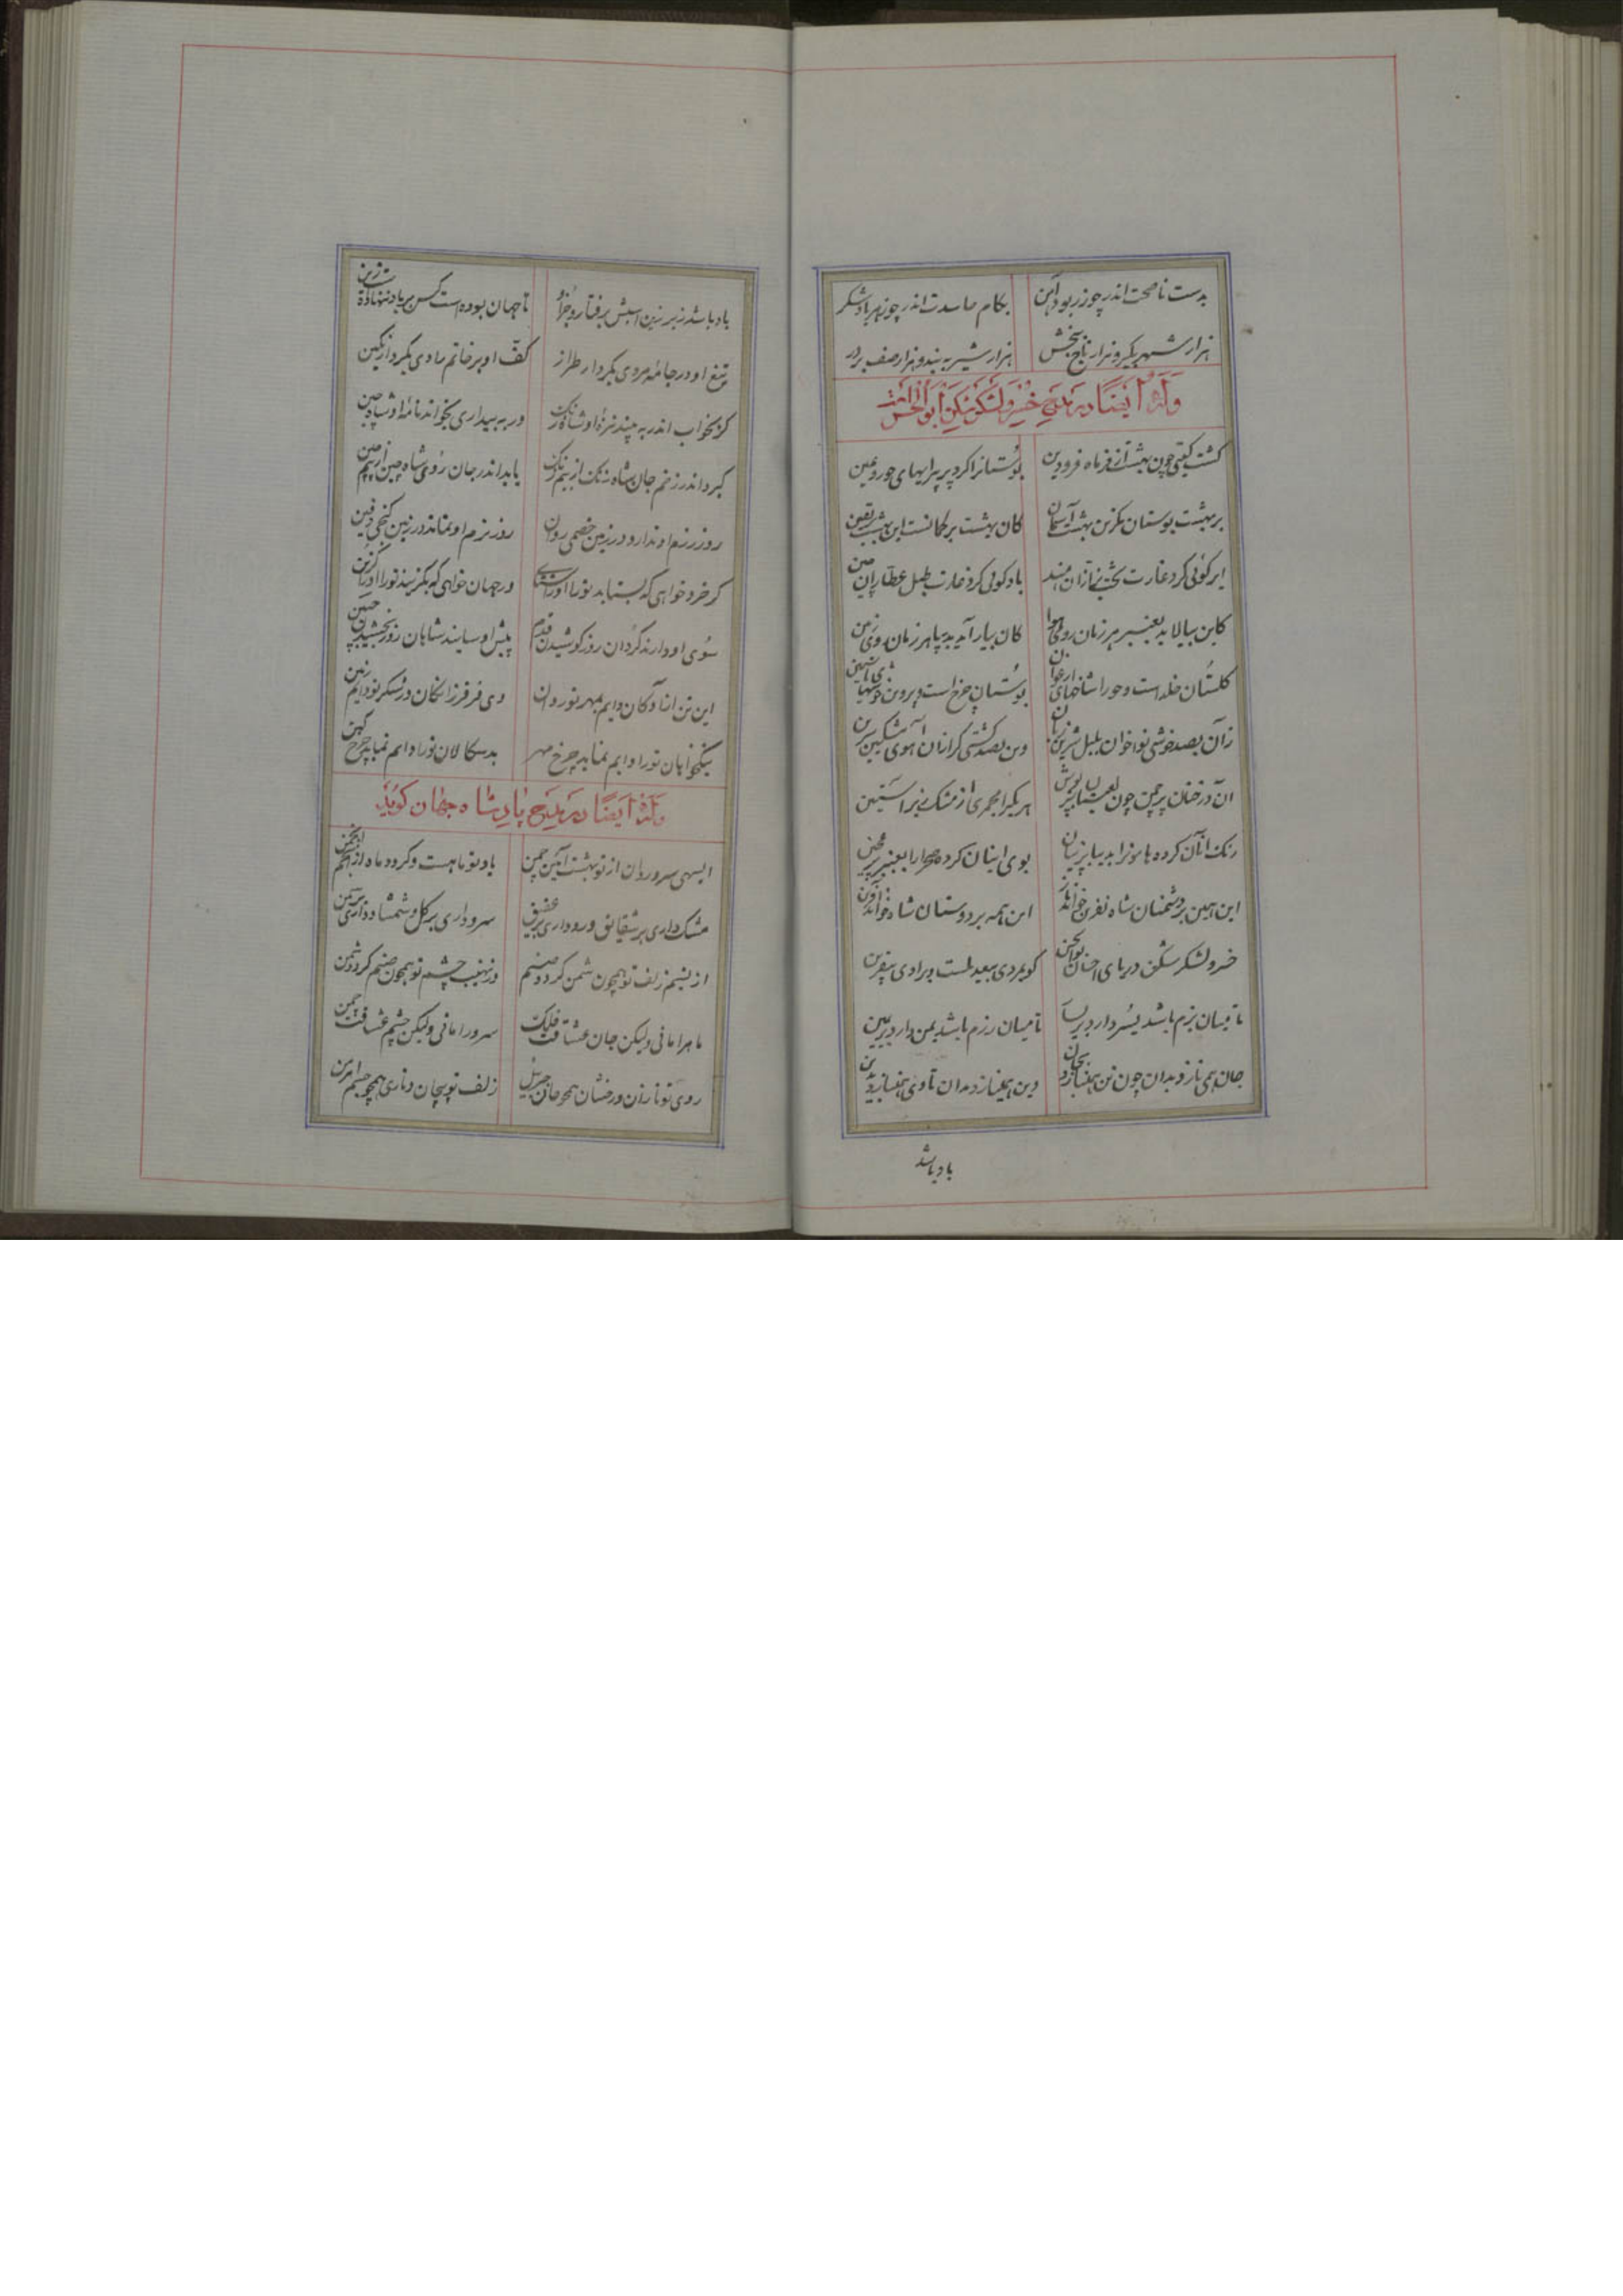 بدست ناصحت اندر چو زر بود آهن بکام حاسدت اندر چو زهر باد شکر
هزار شهر بگیر و هزار تاج ببخش هزار شیر ببند و هزار صف بردر
وله ایضا در مدح خسرو لشکر شکن ابوالحسن
کشت کیتی چون بهشت از فر ماه فرودین بوستانرا کرد پر پیرایهای حور عین
بر بهشت بوستان مکزین بهشت آسمان کان بهشت بر کمانست این بهشت بر یقین
ابر کوئی کرد غارت تخت بزازان هند باد کوئی کرد غارت طبل عطاران چین
کاین بیالاید بعنبر هر زمان روی هوا کان بیاراید بدیبا هر زمان روی زمین
کلستان خلد است و حورا شاخهای ارغوان بوستان چرخ است و پروین خوشهای یاسمین
زان بصد خوشی نواخوان بلبل شیرین زبان وین بصد کشتی کرازان آهوی مشکین سرین
آن درختان بر چمن چون لعبتان سبزپوش هر یکی را مجمری از مشک زیر آستین
رنک آنان کرده هامونرا بدیبا پرنیان بوی اینان کرده صحرا را بعنبر پر عجین
این همین بر دشمنان شاه نفرین خواند باز این همه بر دوستان شاه خواند آفرین
خسرو لشکر شکن دریای احسان بوالحسن کو بمردی بیعدیلست و برادی بیقرین
تا میان بزم باشد یسر دارد بر یسار تا میان رزم باشد یمن دارد بر یمین
جان همی نازد بدان چون تن همی نازد بجان دین همی نازد بدان تا وی همی نازد بدین
باد باشد
باد باشد زیر زین اسبش برفتار و جز او تا جهان بوده است کس بر باد ننهادست زین
تیغ او در جامه مردی بکردار طراز کف او بر خاتم رادی بکردار نکین
کر بخواب اندر به بیند نیزه او شاه زنک ور به بیداری بخواند نامه او شاه چین
کیرد اندر زخم جان شاه زنک از بیم زنک یابد اندر جان روی شاه چین از بیم چین
روز رزم او ندارد در زمین خصمی روان روز بزم او نماند در زمین کنجی دفین
کر خرد خواهی که بستاید تورا او را ستای ور جهان خواهی که بکزیند تورا او را کزین
سوی او دارند کردان روز کوشیدن قدم پیش او سایند شاهان روز بخشیدن جبین
نیکخواهان تورا دایم نماید چرخ مهر بدسکالان تورا دایم نماید چرخ کین
وله ایضا در مدح پادشاه جهان کوید
ایسهی سرو روان از تو بهشت آئین چمن با تو ماهست و کرد ماه از انجم انجمن
مشک داری بر شقایق ورد داری بر عقیق سرو داری بر کل و شمشاد داری بر سمن
از نسیم زلف تو همچون شمن کردد صنم وز نهیب چشم تو همچون صنم کردد شمن
ماه را مانی ولیکن جان عشاقت فلک سرو را مانی ولیکن چشم عشاقت چمن
روی تو تازان و رخشان همچو جان جبرئیل زلف تو پیچان و تاری همچو جسم اهرمن